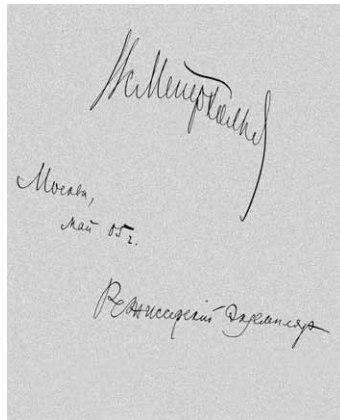 Вс Мейерхольд
Москва,
май 05 г.
Режиссерский Экземпляр